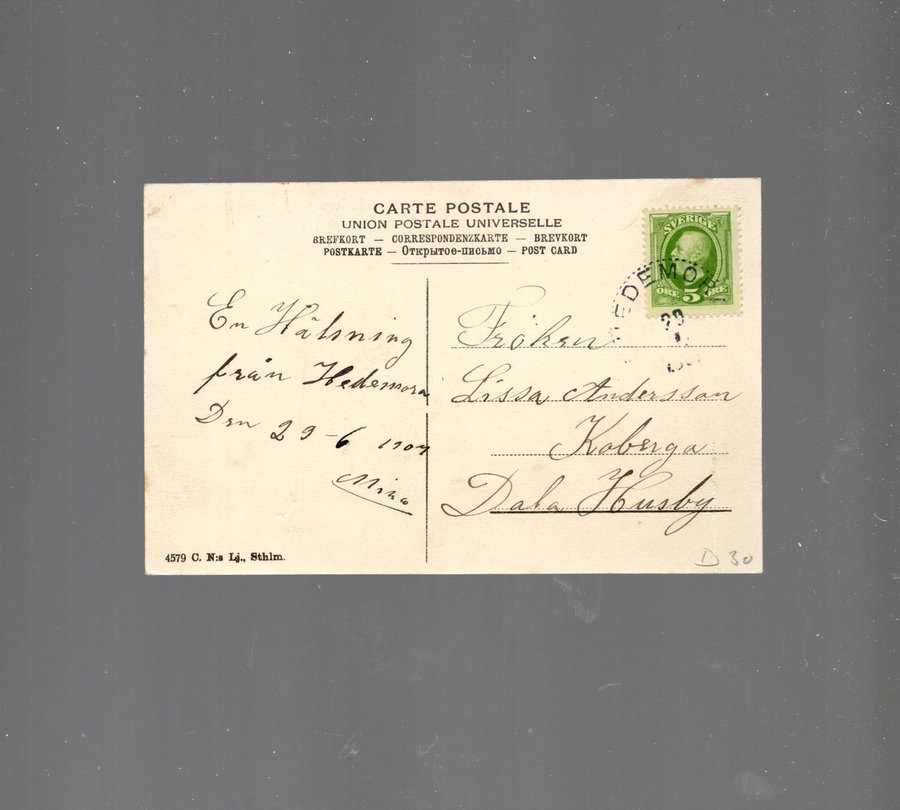 CARTE POSTALE
UNION POSTALE UNIVERSELLE
BREFKORT — CORRESPONDENZKARTE — BREVKORT
POSTKARTE — Открытое-письмо — POST CARD
SVERIGE
ÖRE 5 ÖRE
HEDEMORA
29
En Hälsning
från Hedemora
Den 29-6 1904
Mina
Fröken
Lissa Andersson
Koberga
Dala Husby
4579 C. N:s Lj., Sthlm.
D 30